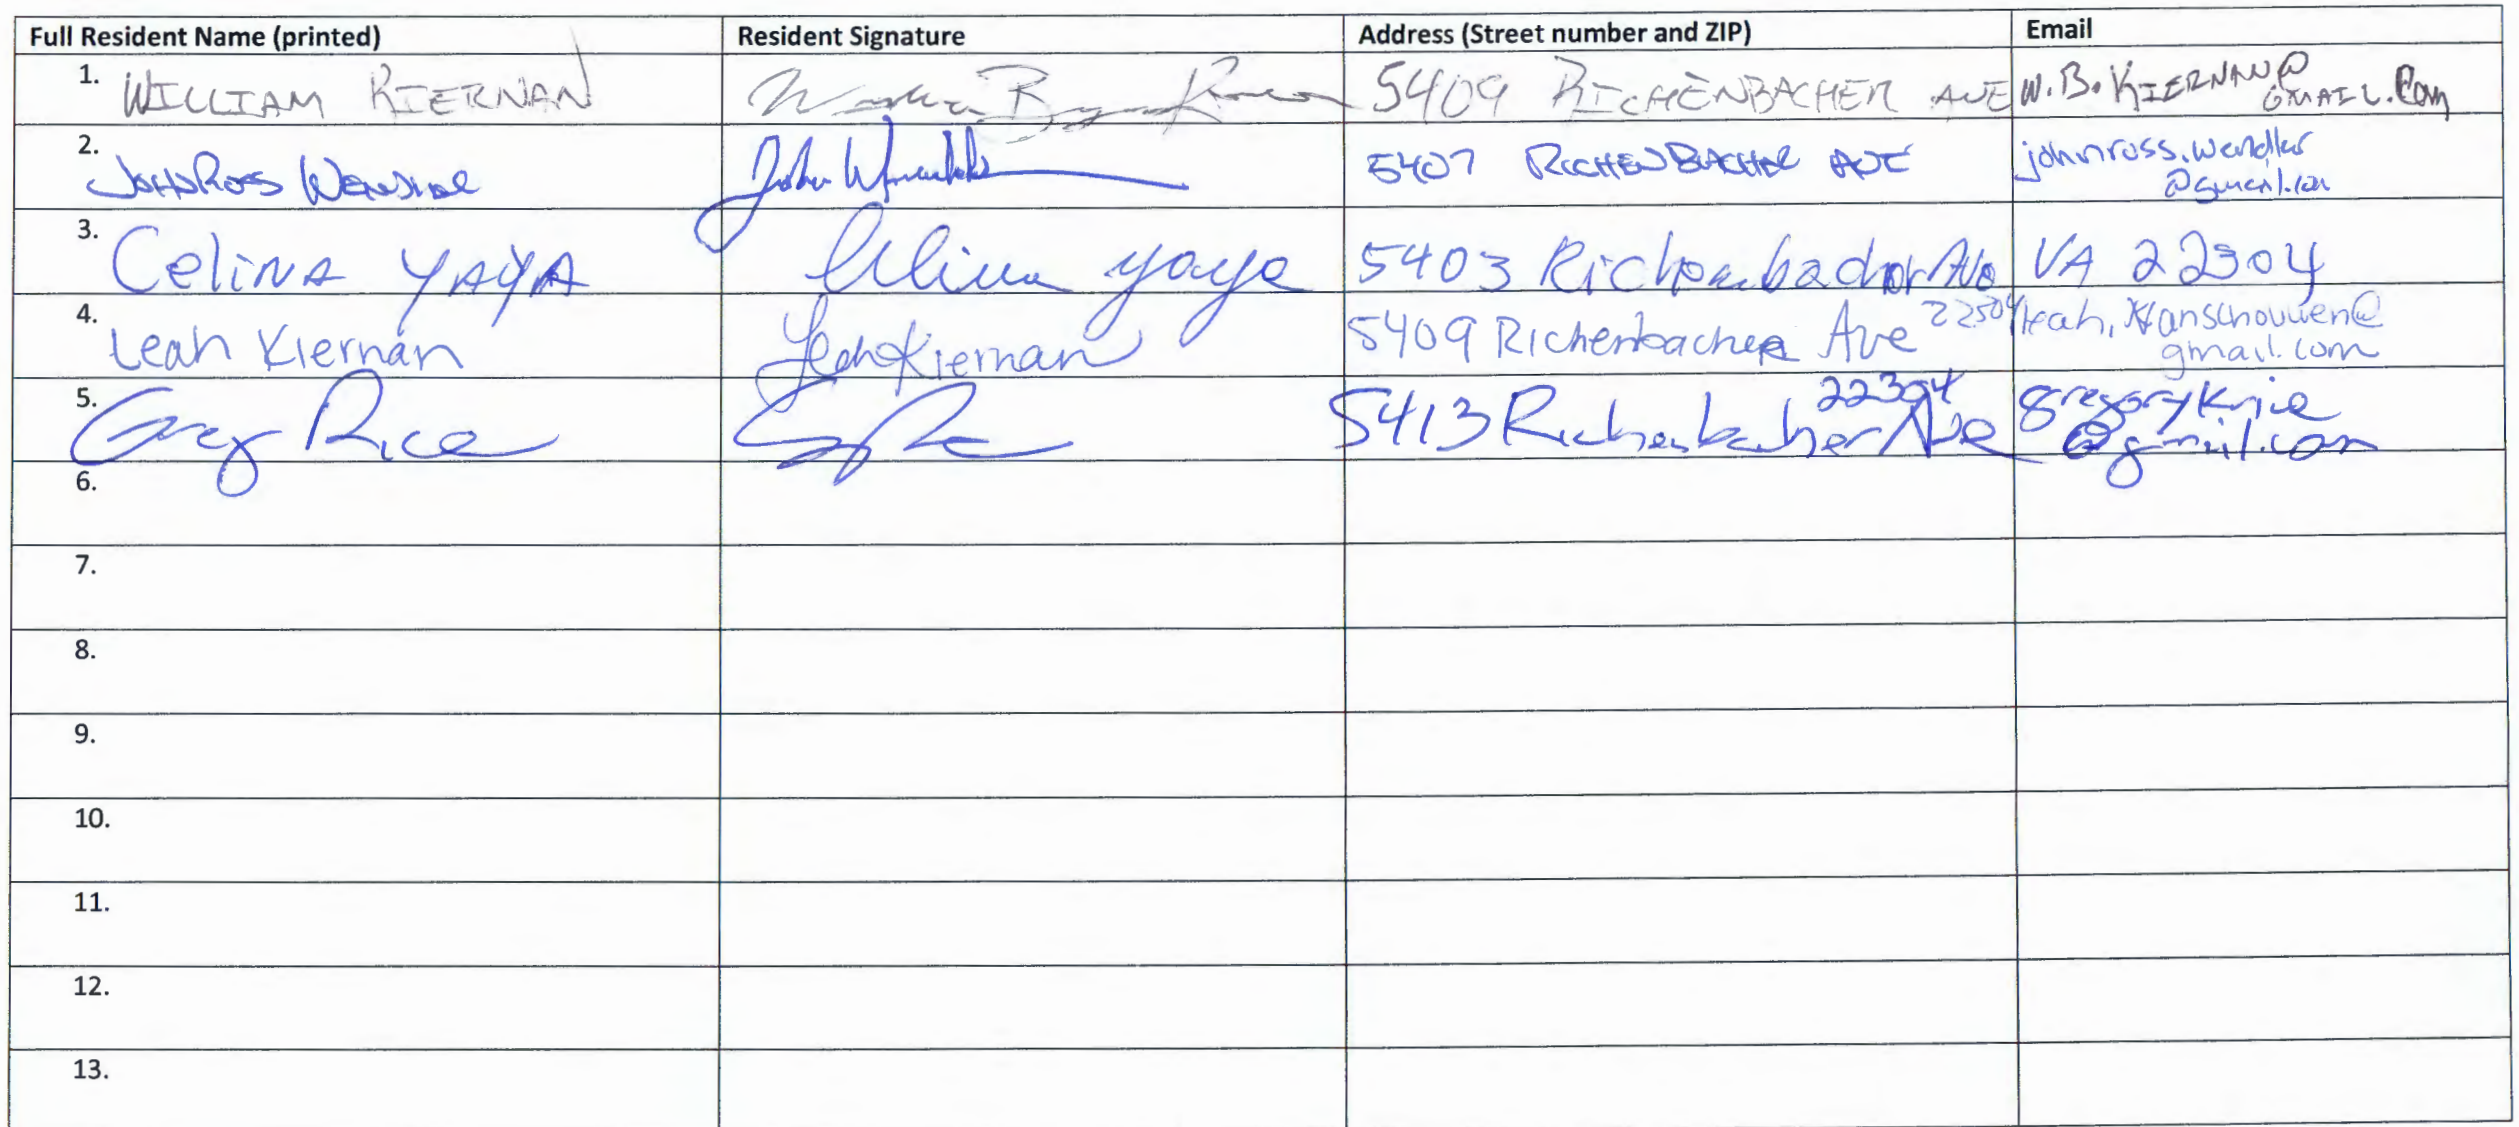 Full Resident Name (printed) Resident Signature Address (Street number and ZIP) Email
1. WILLIAM KIERNAN 5409 RICHENBACHER AVE W.B.KIERNAN@
GMAIL.Com
2. JOHNROSS WENDLER John 5407 RICHENBACHER AVE johnross.wendler
@gmail.com
3. Celina YAYA Celina yaya 5403 Richenbacher Ave VA 22304
4. Leah Kiernan Leah Kiernan 5409 Richenbacher Ave 22304
gmail.com
5. Greg Rice 5413 Richenbacher Ave 22304
@gmail.com
6.
7.
8.
9.
10.
11.
12.
13.